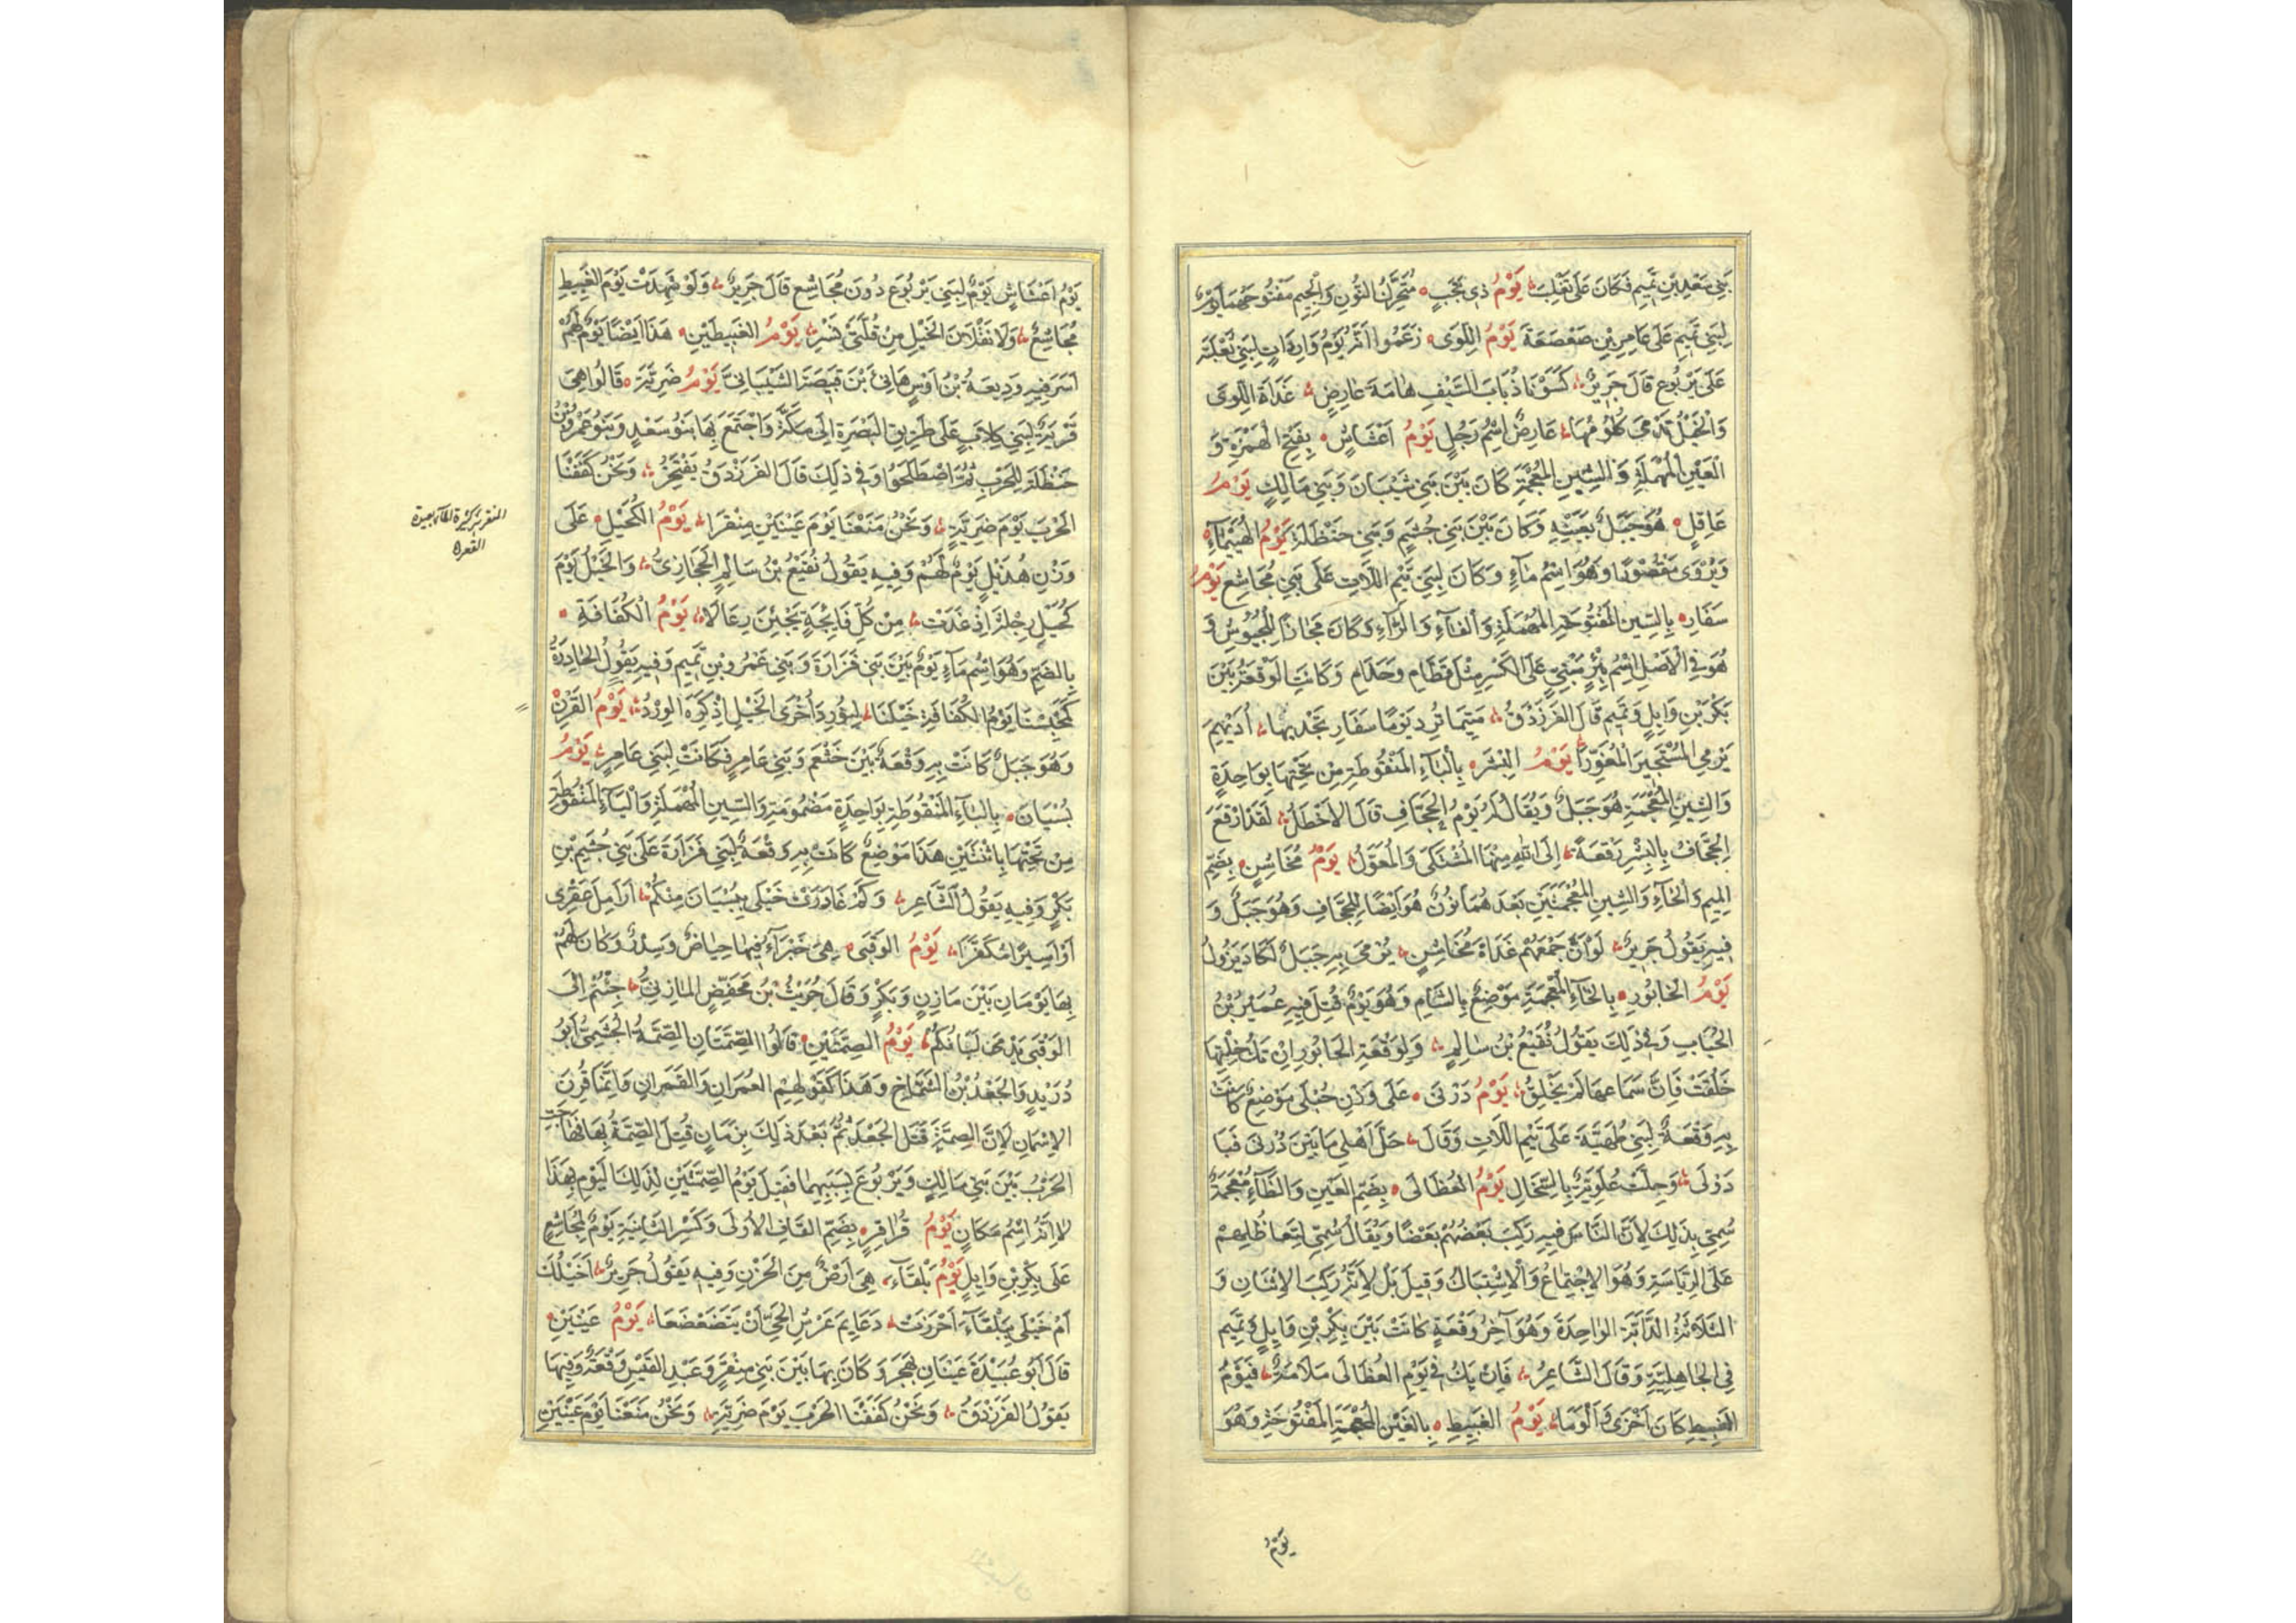 بَنِي سَعْدِ بْنِ تَمِيمٍ فَكَانَ عَلَى تَغْلِبَ يَوْمُ ذِي نَجَبٍ مُتَحَرِّكُ النُّونِ وَالْجِيمِ مَفْتُوحَهُمَا يَوْمٌ
لِبَنِي تَمِيمٍ عَلَى عَامِرِ بْنِ صَعْصَعَةَ يَوْمُ اللِّوَى زَعَمُوا أَنَّهُ يَوْمُ وَارِدَاتٍ لِبَنِي ثَعْلَبَةَ
عَلَى يَرْبُوعٍ قَالَ جَرِيرٌ كَسَوْنَا ذُبَابَ السَّيْفِ هَامَةَ عَارِضٍ غَدَاةَ اللِّوَى
وَالْخَيْلُ تَدْمَى كُلُومُهَا عَارِضٌ اسْمُ رَجُلٍ يَوْمُ اَعْشَاشٍ بِفَتْحِ الْهَمْزَةِ وَ
الْعَيْنِ الْمُهْمَلَةِ وَالشِّينِ الْمُعْجَمَةِ كَانَ بَيْنَ بَنِي شَيْبَانَ وَبَنِي مَالِكٍ يَوْمُ
عَاقِلٍ هُوَ جَبَلٌ بِعَيْنِهِ وَكَانَ بَيْنَ بَنِي جُشَمٍ وَبَنِي حَنْظَلَةَ يَوْمُ الْهُيَيْمَاءِ
وَيُرْوَى مَقْصُورًا وَهُوَ اسْمُ مَاءٍ وَكَانَ لِبَنِي تَيْمِ اللَّاتِ عَلَى بَنِي مُجَاشِعٍ يَوْمُ
سَفَارِ بِالسِّينِ الْمَفْتُوحَةِ الْمُهْمَلَةِ وَالْفَاءِ وَالرَّاءِ وَكَانَ مَجَازًا لِلْجُيُوشِ وَ
هُوَ فِي الْأَصْلِ اسْمُ بِئْرٍ مَبْنِيٍّ عَلَى الْكَسْرِ مِثْلَ قَطَامِ وَحَذَامِ وَكَانَتِ الْوَقْعَةُ بَيْنَ
بَكْرِ بْنِ وَايِلٍ وَتَمِيمٍ قَالَ الْفَرَزْدَقُ مَتَى مَا تَرِدْ يَوْمًا سَفَارِ تَجِدْ بِهَا أُدَيْهِمَ
يَرْمِي الْمُسْتَجِيزَ الْمُعَوِّرَا يَوْمُ الْبِشْرِ بِالْبَاءِ الْمَنْقُوطَةِ مِنْ تَحْتِهَا بِوَاحِدَةٍ
وَالشِّينِ الْمُعْجَمَةِ هُوَ جَبَلٌ وَيُقَالُ لَهُ يَوْمُ الْجَحَّافِ قَالَ الْأَخْطَلُ لَقَدْ أَوْقَعَ
الْجَحَّافُ بِالْبِشْرِ وَقْعَةً إِلَى اللهِ مِنْهَا الْمُشْتَكَى وَالْمُعَوَّلُ يَوْمُ مُخَاشِنٍ بِضَمِّ
الْمِيمِ وَالْخَاءِ وَالشِّينِ الْمُعْجَمَتَيْنِ بَعْدَهُمَا نُونٌ هُوَ أَيْضًا لِلْجَحَّافِ وَهُوَ جَبَلٌ وَ
فِيهِ يَقُولُ جَرِيرٌ لَوْ أَنَّ جَمْعَهُمْ غَدَاةَ مُخَاشِنٍ يُرْمَى بِهِ جَبَلٌ لَكَادَ يَزُولُ
يَوْمُ الْخَابُورِ بِالْخَاءِ الْمُعْجَمَةِ مَوْضِعٌ بِالشَّامِ وَهُوَ يَوْمٌ قُتِلَ فِيهِ عُمَيْرُ بْنُ
الْحُبَابِ وَفِي ذَلِكَ يَقُولُ نُفَيْعُ بْنُ سَالِمٍ وَلِوَقْعَةِ الْخَابُورِ إِنْ تَكُ خِلْتَهَا
خَلُقَتْ فَإِنَّ سَمَاعَهَا لَمْ يَخْلُقِ يَوْمُ دُرْنَى عَلَى وَزْنِ حُبْلَى مَوْضِعٌ كَانَتْ
بِهِ وَقْعَةٌ لِبَنِي طُهَيَّةَ عَلَى تَيْمِ اللَّاتِ وَقَالَ حَلَّ أَهْلِي مَا بَيْنَ دُرْنَى فَبَا
دَوْلَى وَحَلَّتْ عُلْوِيَّةٌ بِالسِّخَالِ يَوْمُ الْعُظَالَى بِضَمِّ الْعَيْنِ وَالظَّاءِ مُعْجَمَةٌ
سُمِّيَ بِذَلِكَ لِأَنَّ النَّاسَ فِيهِ رَكِبَ بَعْضُهُمْ بَعْضًا وَيُقَالُ سُمِّيَ لِتَعَاظُلِهِمْ
عَلَى الرِّيَاسَةِ وَهُوَ الْاِجْتِمَاعُ وَالْاِشْتِبَاكُ وَقِيلَ بَلْ لِأَنَّهُ رَكِبَ الْاِثْنَانِ وَ
الثَّلَاثَةُ الدَّابَّةَ الْوَاحِدَةَ وَهُوَ آخِرُ وَقْعَةٍ كَانَتْ بَيْنَ بَكْرِ بْنِ وَايِلٍ وَتَمِيمٍ
فِي الْجَاهِلِيَّةِ وَقَالَ الشَّاعِرُ فَإِنْ يَكُ فِي يَوْمِ الْعُظَالَى مَلَامَةٌ فَيَوْمُ
الْغَبِيطِ كَانَ أَخْزَى وَأَلْوَمَا يَوْمُ الْغَبِيطِ بِالْغَيْنِ الْمُعْجَمَةِ الْمَفْتُوحَةِ وَهُوَ
يَوْمُ
يَوْمُ اَعْشَاشٍ يَوْمٌ لِبَنِي يَرْبُوعَ دُونَ مُجَاشِعٍ قَالَ جَرِيرٌ وَلَا شَهِدَتْ يَوْمَ الْغَبِيطِ
مُجَاشِعٌ وَلَا نَقَلَانَ الْخَيْلِ مِنْ قُلَّتَيْ نَسْرِ يَوْمُ الْغَبِيطَيْنِ هَذَا أَيْضًا يَوْمٌ لَهُمْ
أَسَرَ فِيهِ وَدِيعَةُ بْنُ أَوْسٍ هَانِئَ بْنَ قَبِيصَةَ الشَّيْبَانِيَّ يَوْمُ ضَرِيَّةَ قَالُوا هِيَ
قَرْيَةٌ لِبَنِي كِلَابٍ عَلَى طَرِيقِ الْبَصْرَةِ إِلَى مَكَّةَ وَاجْتَمَعَ بِهَا بَنُو سَعْدٍ وَبَنُو عَمْرِو بْنِ
حَنْظَلَةَ لِلْحَرْبِ ثُمَّ اصْطَلَحُوا وَفِي ذَلِكَ قَالَ الْفَرَزْدَقُ يَفْتَخِرُ وَنَحْنُ كَفَفْنَا
الْحَرْبَ يَوْمَ ضَرِيَّةٍ وَنَحْنُ مَنَعْنَا يَوْمَ عَيْنَيْنِ مِنْقَرَا يَوْمُ الْكُحَيْلِ عَلَى
وَزْنِ هُذَيْلٍ يَوْمٌ لَهُمْ وَفِيهِ يَقُولُ نُفَيْعُ بْنُ سَالِمٍ الْحِجَازِيُّ وَالْخَيْلُ يَوْمَ
كُحَيْلِ رِجْلَةَ إِذْ غَدَتْ مِنْ كُلِّ فَائِجَةٍ يَجِئْنَ رِعَالًا يَوْمُ الْكُفَافَةِ
بِالضَّمِّ وَهُوَ اسْمُ مَاءٍ يَوْمٌ بَيْنَ بَنِي فَزَارَةَ وَبَنِي عَمْرِو بْنِ تَمِيمٍ وَفِيهِ يَقُولُ الْحَادِرَةُ
كَمَحْبِسِنَا يَوْمَ الْكُفَافَةِ خَيْلَنَا لِنُورِدَ أُخْرَى الْخَيْلِ إِذْ كَرِهَ الْوِرْدُ يَوْمُ الْقَرْنِ
وَهُوَ جَبَلٌ كَانَتْ بِهِ وَقْعَةٌ بَيْنَ خَثْعَمَ وَبَنِي عَامِرٍ فَكَانَتْ لِبَنِي عَامِرٍ يَوْمُ
بُسْيَانَ بِالْبَاءِ الْمَنْقُوطَةِ بِوَاحِدَةٍ مَضْمُومَةٍ وَالسِّينِ الْمُهْمَلَةِ وَالْيَاءِ الْمَنْقُوطَةِ
مِنْ تَحْتِهَا بِاثْنَتَيْنِ هَذَا مَوْضِعٌ كَانَتْ بِهِ وَقْعَةٌ لِبَنِي فَزَارَةَ عَلَى بَنِي جُشَمِ بْنِ
بَكْرٍ وَفِيهِ يَقُولُ الشَّاعِرُ وَكَمْ غَادَرَتْ خَيْلِي بِبُسْيَانَ مِنْكُمْ أَرَامِلَ عَقْرَى
أَوْ أَسِيرًا مُكَفَّرًا يَوْمُ الْوَقَبَى هِيَ خَبْرَاءُ فِيهَا حِيَاضٌ وَسِدْرٌ وَكَانَ لَهُمْ
بِهَا يَوْمَانِ بَيْنَ مَازِنٍ وَبَكْرٍ وَقَالَ حُرَيْثُ بْنُ مُحَفِّضٍ الْمَازِنِيُّ جِئْتُمْ إِلَى
الْوَقَبَى تَدْمَى لَبَّاتُكُمْ يَوْمُ الصِّمَّتَيْنِ قَالُوا الصِّمَّتَانِ الصِّمَّةُ الْجُشَمِيُّ أَبُو
دُرَيْدٍ وَالْجَعْدُ بْنُ الشَّمَّاخِ وَهَذَا كَقَوْلِهِمِ الْعُمَرَانِ وَالْقَمَرَانِ وَإِنَّمَا قُرِنَ
الْاِسْمَانِ لِأَنَّ الصِّمَّةَ قَتَلَ الْجَعْدَ ثُمَّ بَعْدَ ذَلِكَ بِزَمَانٍ قُتِلَ الصِّمَّةُ بِهِ فَهَاجَتِ
الْحَرْبُ بَيْنَ بَنِي مَالِكٍ وَيَرْبُوعَ بِسَبَبِهِمَا فَقِيلَ يَوْمُ الصِّمَّتَيْنِ لِذَلِكَ الْيَوْمِ بِهَذَا
لَا أَنَّهُ اسْمُ مَكَانٍ يَوْمُ قُرَاقِرٍ بِضَمِّ الْقَافِ الْأُولَى وَكَسْرِ الثَّانِيَةِ يَوْمٌ لِمُجَاشِعٍ
عَلَى بَكْرِ بْنِ وَايِلٍ يَوْمُ بَلْقَاءَ هِيَ أَرْضٌ مِنَ الْحَزْنِ وَفِيهِ يَقُولُ جَرِيرٌ أَخَيْلُكَ
أَمْ خَيْلِي بِبَلْقَاءَ أَحْرَزَتْ دَعَايِمَ عَرْشِ الْحَيِّ أَنْ يَتَضَعْضَعَا يَوْمُ عَيْنَيْنِ
قَالَ أَبُو عُبَيْدَةَ عَيْنَانِ بِهَجَرَ وَكَانَ بِهَا بَيْنَ بَنِي مِنْقَرٍ وَعَبْدِ الْقَيْسِ وَقْعَةٌ وَفِيهَا
يَقُولُ الْفَرَزْدَقُ وَنَحْنُ كَفَفْنَا الْحَرْبَ يَوْمَ ضَرِيَّةٍ وَنَحْنُ مَنَعْنَا يَوْمَ عَيْنَيْنِ
بعيدة
القعر